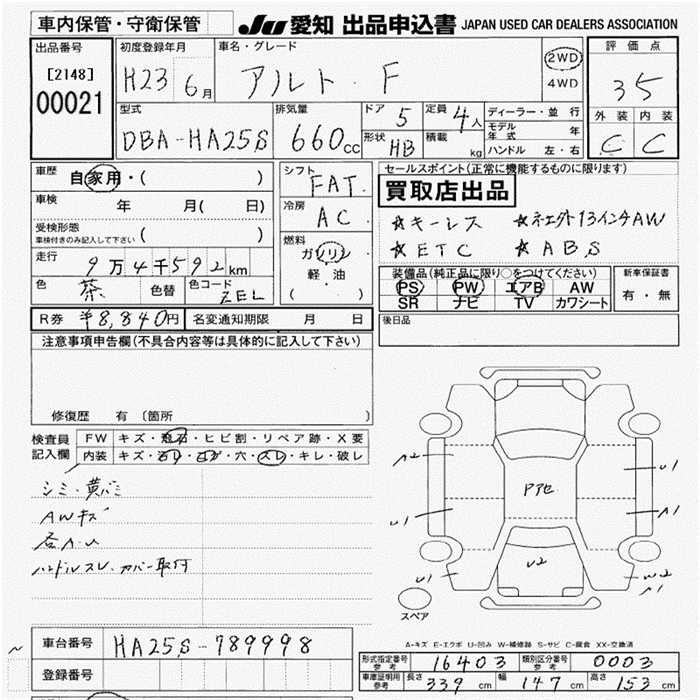 車内保管・守衛保管 JU 愛知 出品申込書 JAPAN USED CAR DEALERS ASSOCIATION
出品番号 初度登録年月 車名・グレード 評価点
[2148] H23 6月 アルト F 2WD 35
00021 4WD
外装 内装
型式 排気量 ドア 5 定員 4人 ディーラー・並行
DBA-HA25S 660cc モデル年式 年 C C
形状 HB 積載 kg ハンドル 左・右
車歴 自家用・( ) シフト FAT セールスポイント(正常に機能するものに限ります)
買取店出品
車検 年 月( 日) 冷房 AC ☆キーレス ☆ネエクト13インチAW
受検形態 車検付きのみ記入して下さい ( ) ☆ETC ☆ABS
走行 9万4千592km 燃料 ガソリン 軽油 ( )
装備品(純正品に限り○をつけてください) 新車保証書
色 茶 色替 色コード ZEL PS PW エアB AW 有・無
SR ナビ TV カワシート
R券 ¥8,840円 名変通知期限 月 日 後日品
注意事項申告欄(不具合内容等は具体的に記入して下さい)
修復歴 有 〔箇所 〕
検査員 FW キズ・飛石・ヒビ割・リペア跡・X要
記入欄 内装 キズ・ヨゴレ・コゲ・穴・スレ・キレ・破レ
シミ・黄バミ
AWキズ
各A・U
ハンドルスレ・カバー取付
A2 U1 Pアセ U1 A1 U1 U2 W2 A1 A1
スペア
A-キズ E-エクボ U-凹み W-補修跡 S-サビ C-腐食 XX-交換済
車台番号 HA25S-789998
登録番号
形式指定番号 参考 16403 類別区分番号 参考 0003
車庫証明用 参考 長さ 339cm 幅 147cm 高さ 153cm